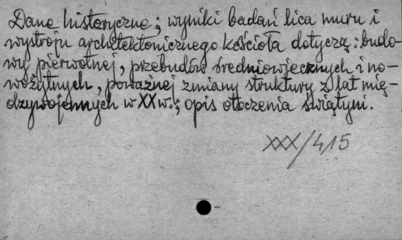 Dane historyczne; wyniki badań lica muru i
wystroju architektonicznego kościoła dotyczą: budo-
wy pierwotnej, przebudów średniowiecznych i no-
wożytnych, poważnej zmiany struktury z lat mię-
dzywojennych w XX w.; opis otoczenia świątyni.
XXX/415